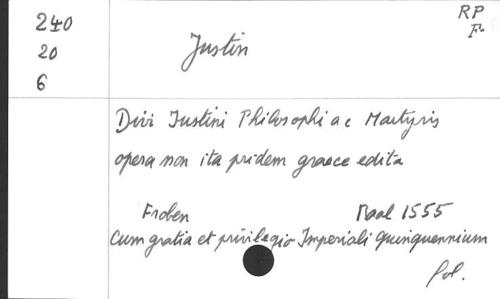 240
20
6
RP
F.
Justin
Divi Justini Philosophi ac Martyris
opera non ita pridem graece edita
Froben Baal 1555
Cum gratia et privilegio Imperiali Quinquennium
fol.